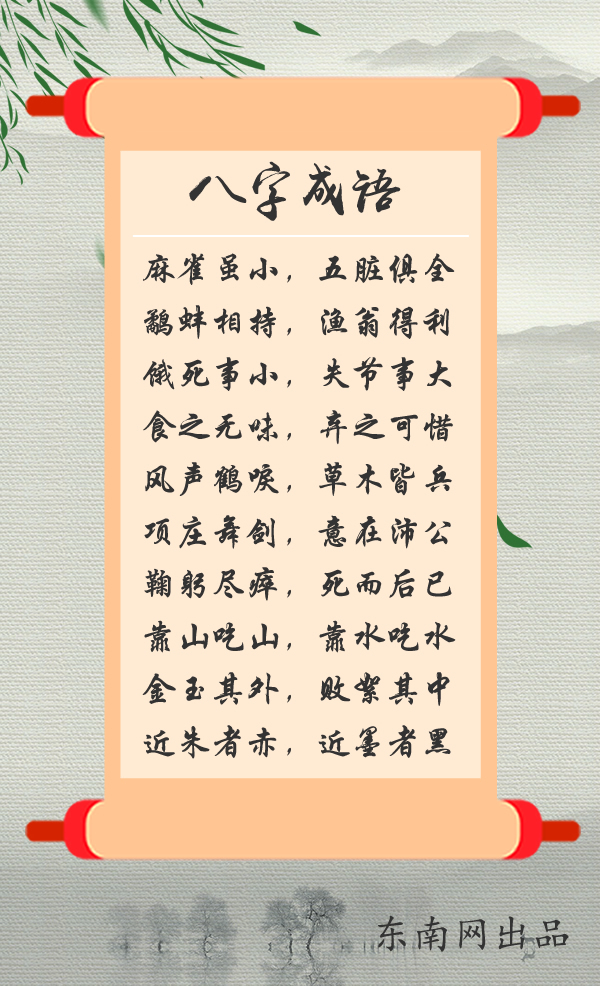 八字成语
麻雀虽小，五脏俱全
鹬蚌相持，渔翁得利
饿死事小，失节事大
食之无味，弃之可惜
风声鹤唳，草木皆兵
项庄舞剑，意在沛公
鞠躬尽瘁，死而后已
靠山吃山，靠水吃水
金玉其外，败絮其中
近朱者赤，近墨者黑
东南网出品